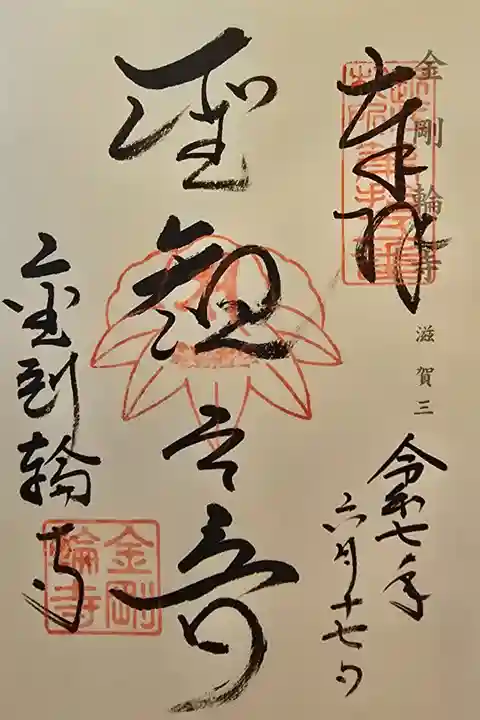 金剛輪寺 滋賀三
奉拝
令和七年
六月十七日
聖観世音
金剛輪寺
金剛
輪寺